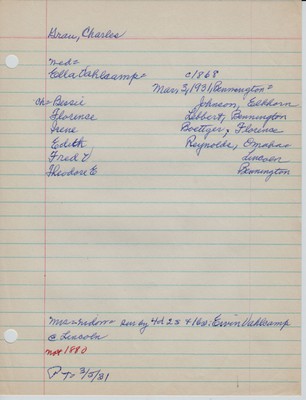 Grau, Charles
med=
Ella Vahlkamp= c/868
Mar 3, 1931, Bennington=
ch= Bessie Johnson, Elkhorn
Florence Lebbert, Bennington
Irene Boettger, Florence
Edith Reynolds, Omaha
Fred D Lincoln
Theodore E Bennington
sur by 4d 2s & 1 bro: Ervin Vahlkamp
@ Lincoln
not 1880
P To 3/5/31